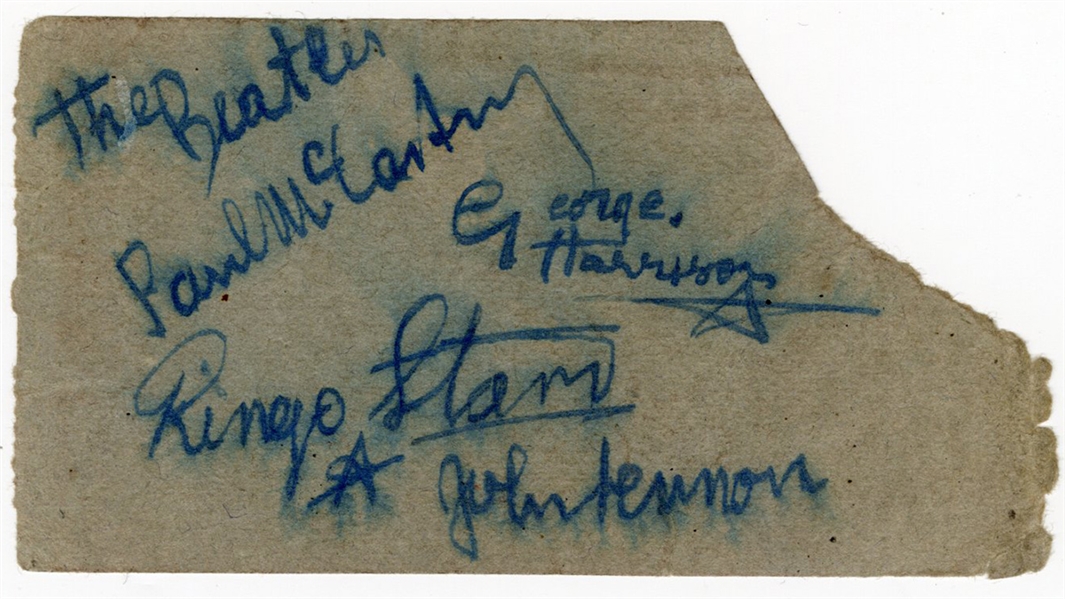 The Beatles
Paul McCartney
George.
Harrison
Ringo Starr
John Lennon